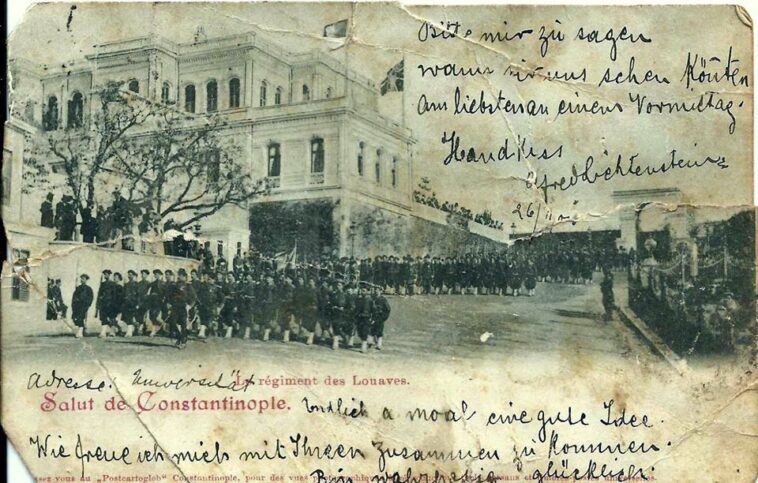 Bitte mir zu sagen
wann wir uns sehen könnten
am liebsten an einem Vormittag.
Handkiss
Alfred Lichtenstein
26/
Adresse: Universität
Le régiment des Louaves.
Salut de Constantinople.
Endlich a moal eine gute Idee.
Wie freue ich mich mit Ihnen zusammen zu kommen.
Bin wahrhaftig glücklich.
ssez vous au „Postcartogleb" Constantinople, pour des vues